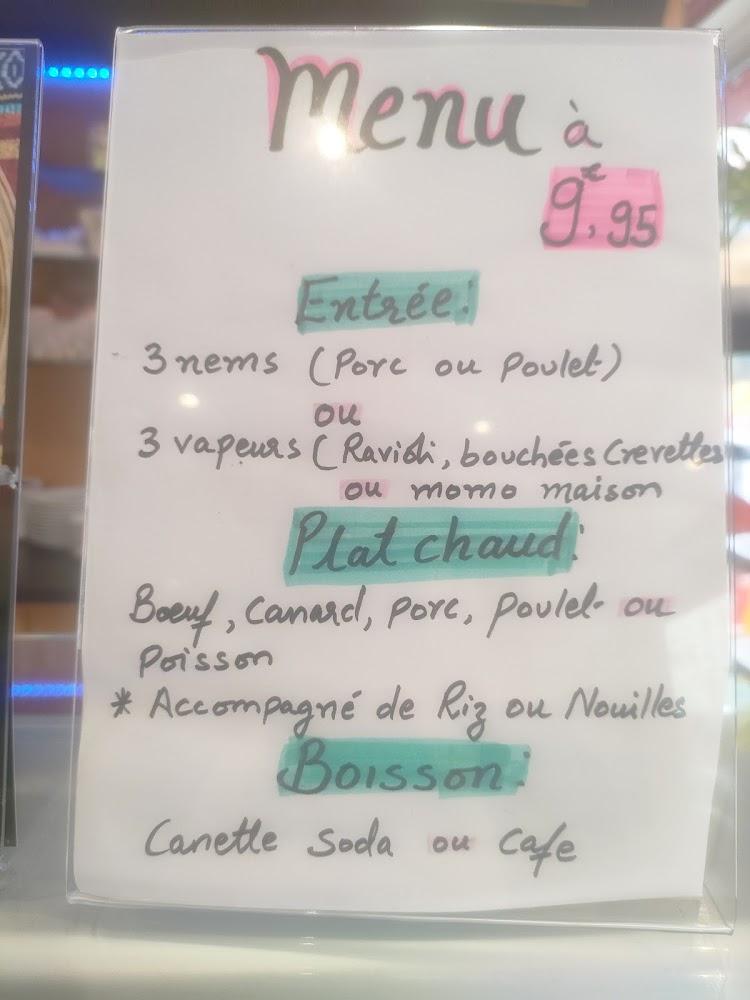 Menu à
9,€95
Entrée:
3 nems (Porc ou poulet)
ou
3 vapeurs (Ravioli, bouchées Crevettes
ou momo maison
Plat chaud:
Boeuf, Canard, porc, poulet ou
poisson
* Accompagné de Riz ou Nouilles
Boisson:
Canette Soda ou Cafe